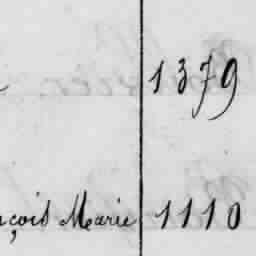 1379
nçois Marie 1110